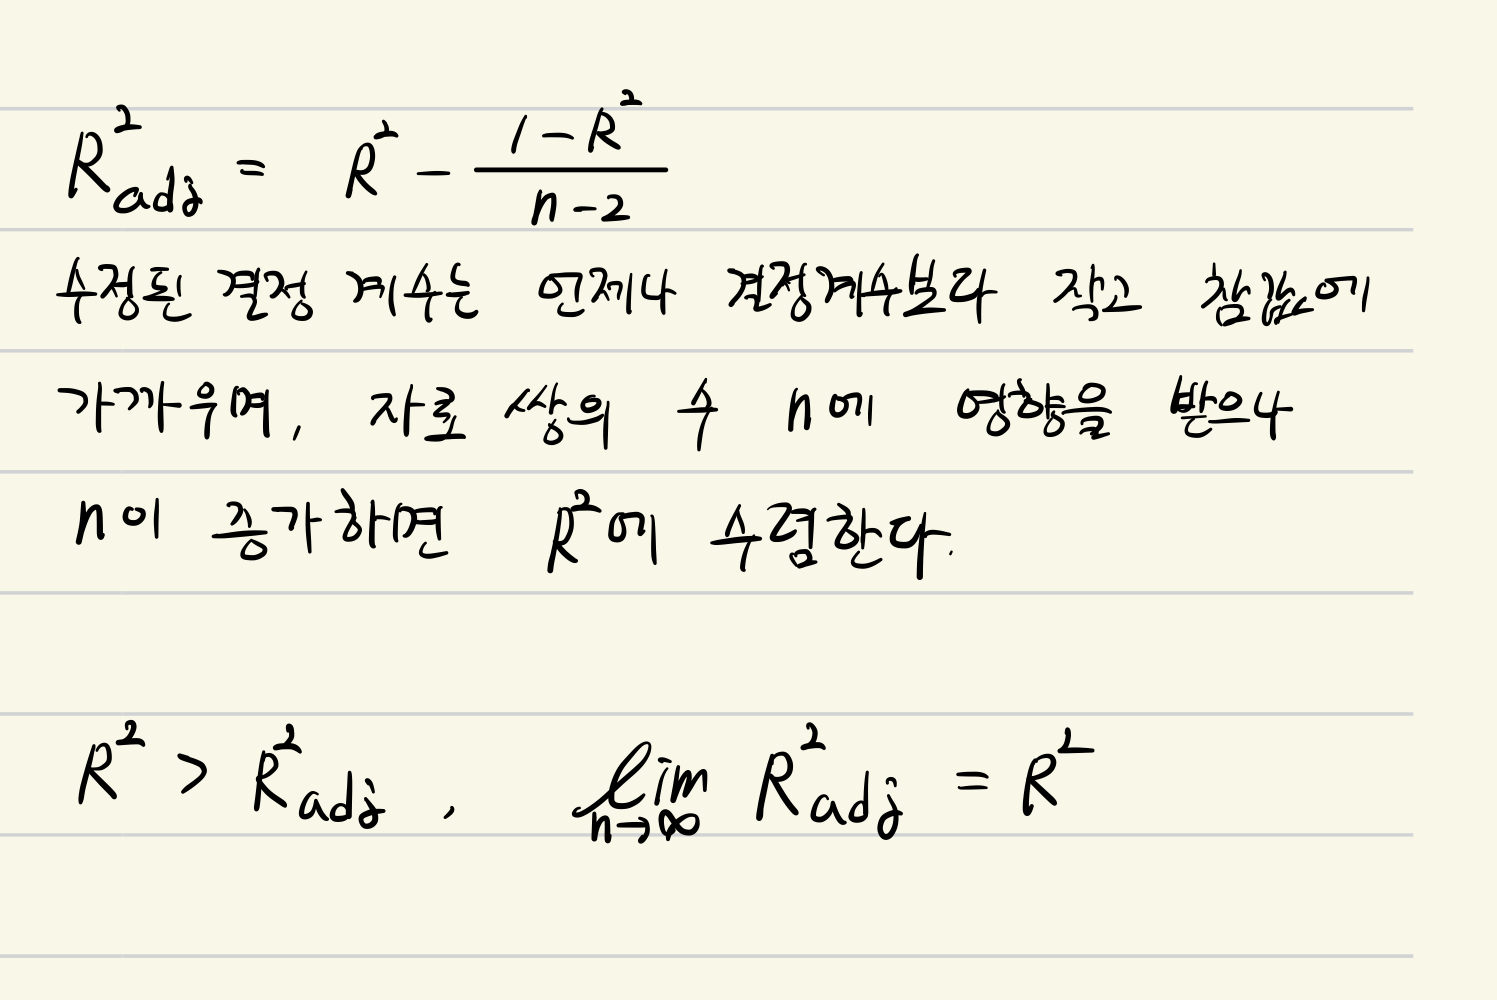 R²adj = R² - (1-R²)/(n-2)
수정된 결정 계수는 언제나 결정계수보다 작고 참값에
가까우며, 자료 쌍의 수 n에 영향을 받으나
n이 증가하면 R²에 수렴한다.
R² > R²adj , lim n→∞ R²adj = R²